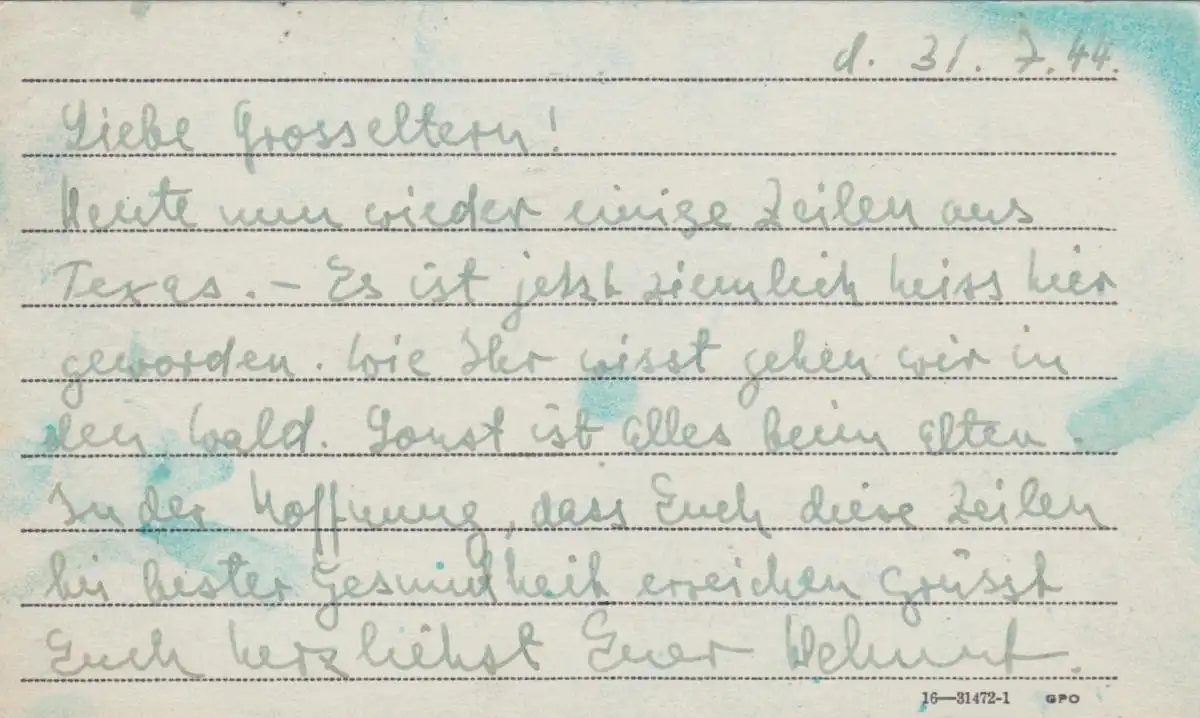 d. 31. 7. 44.
Liebe Grosseltern!
Heute nun wieder einige Zeilen aus
Texas. – Es ist jetzt ziemlich heiss hier
geworden. Wie Ihr wisst gehen wir in
den Wald. Sonst ist alles beim Alten.
In der Hoffnung, dass Euch diese Zeilen
bei bester Gesundheit erreichen grüsst
Euch herzlichst Euer Helmut.
16—31472-1 GPO